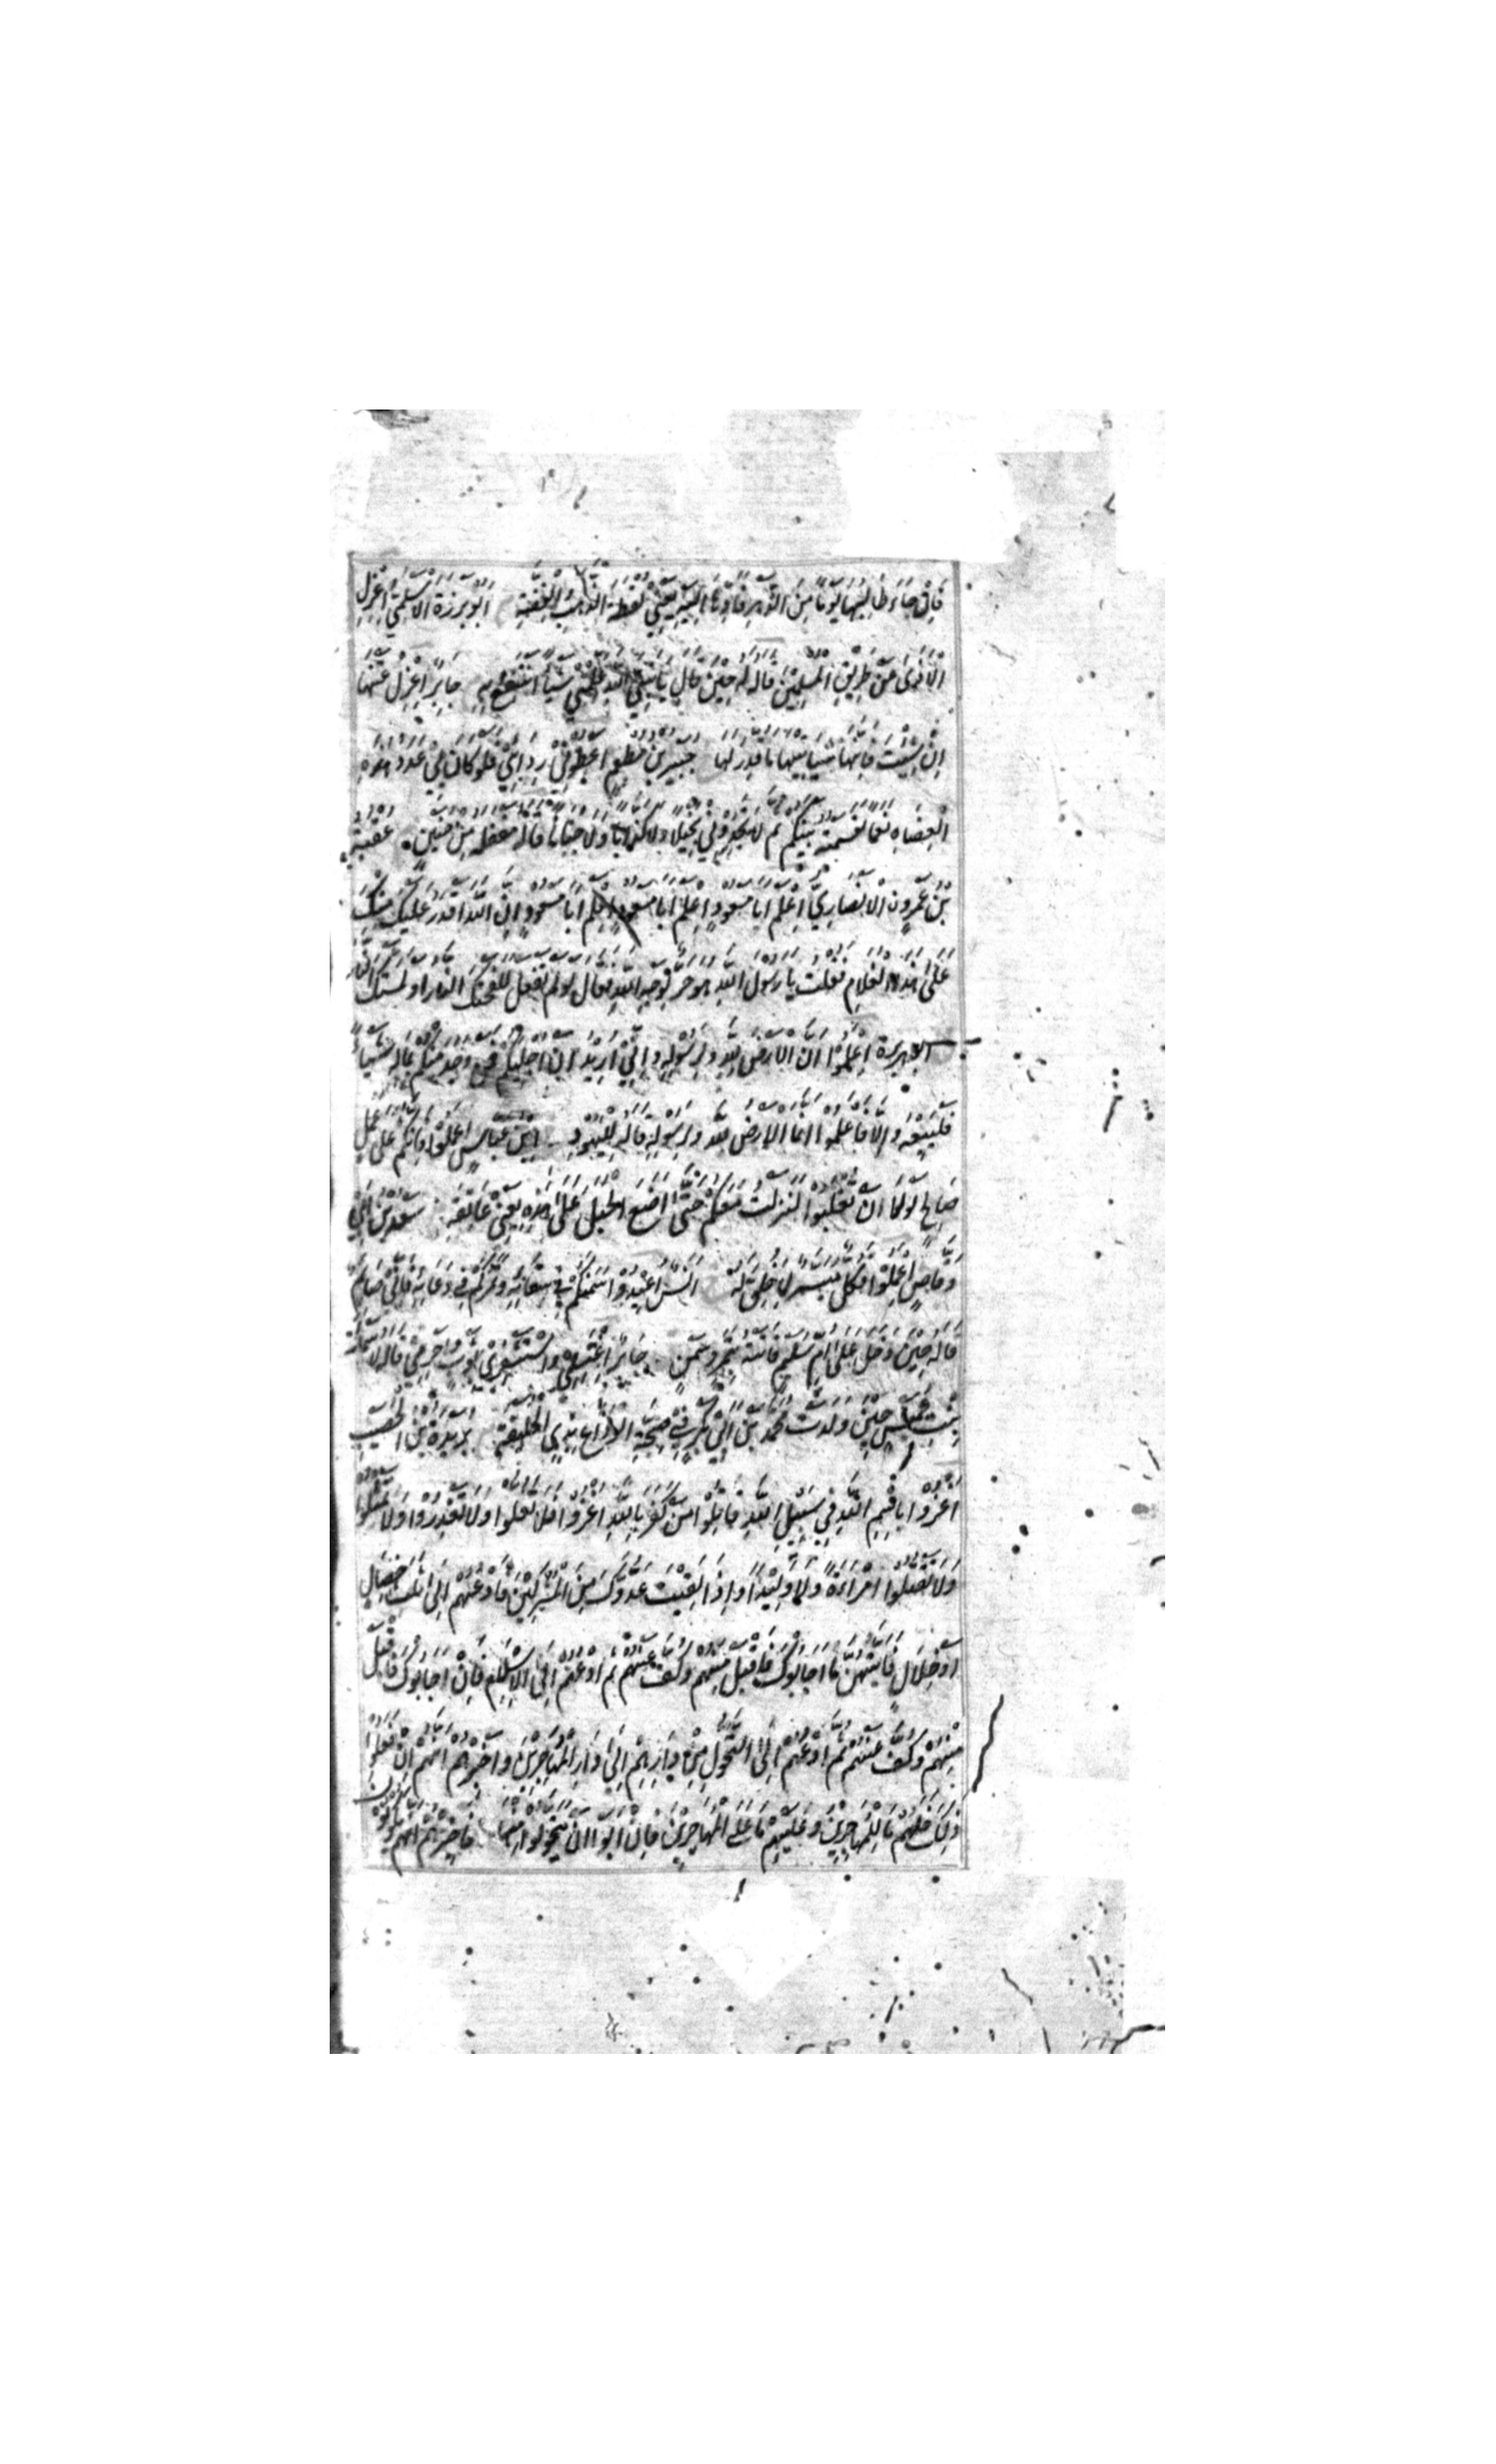 فَاِنْ جَاءَ طَالِبُهَا يَوْمًا مِنَ الدَّهْرِ فَاَدِّهَا اِلَيْهِ يَعْنِي لُقَطَةَ الذَّهَبِ وَالْفِضَّةِ اَبُو بَرْزَةَ الْاَسْلَمِيُّ اِعْزِلِ
الْاَذَى عَنْ طَرِيْقِ الْمُسْلِمِيْنَ قَالَهُ لَهُ حِيْنَ قَالَ يَا نَبِيَّ اللّٰهِ عَلِّمْنِي شَيْئًا اَنْتَفِعُ بِهِ جَابِرٌ اِعْزِلْ عَنْهَا
اِنْ شِئْتَ فَاِنَّهَا سَيَاْتِيْهَا مَا قُدِّرَ لَهَا جُبَيْرُ بْنُ مُطْعِمٍ اَعْطُوْنِي رِدَائِي فَلَوْ كَانَ لِي عَدَدُ هٰذِهِ
الْعِضَاهِ نَعَمًا لَقَسَمْتُهُ بَيْنَكُمْ ثُمَّ لَا تَجِدُوْنِي بَخِيْلًا وَلَا كَذَّابًا وَلَا جَبَانًا قَالَهُ مَقْفَلَهُ مِنْ حُنَيْنٍ عُقْبَةُ
بْنُ عَمْرٍو الْاَنْصَارِيُّ اِعْلَمْ اَبَا مَسْعُوْدٍ اِعْلَمْ اَبَا مَسْعُوْدٍ اِعْلَمْ اَبَا مَسْعُوْدٍ اِنَّ اللّٰهَ اَقْدَرُ عَلَيْكَ مِنْكَ
عَلٰى هٰذَا الْغُلَامِ فَقُلْتُ يَا رَسُوْلَ اللّٰهِ هُوَ حُرٌّ لِوَجْهِ اللّٰهِ فَقَالَ لَوْ لَمْ تَفْعَلْ لَلَفَحَتْكَ النَّارُ اَوْ لَمَسَّتْكَ النَّارُ
اَبُو هُرَيْرَةَ اِعْلَمُوْا اَنَّ الْاَرْضَ لِلّٰهِ وَلِرَسُوْلِهِ وَاِنِّي اُرِيْدُ اَنْ اُجْلِيَكُمْ فَمَنْ وَجَدَ مِنْكُمْ بِمَالِهِ شَيْئًا
فَلْيَبِعْهُ وَاِلَّا فَاعْلَمُوْا اَنَّمَا الْاَرْضُ لِلّٰهِ وَلِرَسُوْلِهِ قَالَهُ لِلْيَهُوْدِ اِبْنُ عَبَّاسٍ اِعْمَلُوْا فَاِنَّكُمْ عَلٰى عَمَلٍ
صَالِحٍ لَوْلَا اَنْ تُغْلَبُوْا لَنَزَلْتُ مَعَكُمْ حَتّٰى اَضَعَ الْحَبْلَ عَلٰى هٰذِهِ يَعْنِي عَاتِقَهُ سَعْدُ بْنُ اَبِي
وَقَّاصٍ اِعْمَلُوْا فَكُلٌّ مُيَسَّرٌ لِمَا خُلِقَ لَهُ اَنَسٌ اَعِيْدُوْا سَمْنَكُمْ فِي سِقَائِهِ وَتَمْرَكُمْ فِي وِعَائِهِ فَاِنِّي صَائِمٌ
قَالَهُ حِيْنَ دَخَلَ عَلٰى اُمِّ سُلَيْمٍ فَاَتَتْهُ بِتَمْرٍ وَسَمْنٍ جَابِرٌ اِغْتَسِلِي وَاسْتَثْفِرِي بِثَوْبٍ وَاَحْرِمِي قَالَهُ لِاَسْمَاءَ
بِنْتِ عُمَيْسٍ حِيْنَ وَلَدَتْ مُحَمَّدَ بْنَ اَبِي بَكْرٍ فِي حَجَّةِ الْوَدَاعِ بِذِي الْحُلَيْفَةِ بُرَيْدَةُ بْنُ الْحُصَيْبِ
اُغْزُوْا بِاسْمِ اللّٰهِ فِي سَبِيْلِ اللّٰهِ قَاتِلُوْا مَنْ كَفَرَ بِاللّٰهِ اُغْزُوْا فَلَا تَغُلُّوْا وَلَا تَغْدِرُوْا وَلَا تُمَثِّلُوْا
وَلَا تَقْتُلُوْا امْرَاَةً وَلَا وَلِيْدًا وَاِذَا لَقِيْتَ عَدُوَّكَ مِنَ الْمُشْرِكِيْنَ فَادْعُهُمْ اِلٰى ثَلٰثِ خِصَالٍ
اَوْ خِلَالٍ فَاَيَّتُهُنَّ مَا اَجَابُوْكَ فَاقْبَلْ مِنْهُمْ وَكُفَّ عَنْهُمْ ثُمَّ ادْعُهُمْ اِلَى الْاِسْلَامِ فَاِنْ اَجَابُوْكَ فَاقْبَلْ
مِنْهُمْ وَكُفَّ عَنْهُمْ ثُمَّ ادْعُهُمْ اِلَى التَّحَوُّلِ مِنْ دَارِهِمْ اِلٰى دَارِ الْمُهَاجِرِيْنَ وَاَخْبِرْهُمْ اَنَّهُمْ اِنْ فَعَلُوْا
ذٰلِكَ فَلَهُمْ مَا لِلْمُهَاجِرِيْنَ وَعَلَيْهِمْ مَا عَلَى الْمُهَاجِرِيْنَ فَاِنْ اَبَوْا اَنْ يَتَحَوَّلُوْا مِنْهَا فَاَخْبِرْهُمْ اَنَّهُمْ يَكُوْنُوْنَ